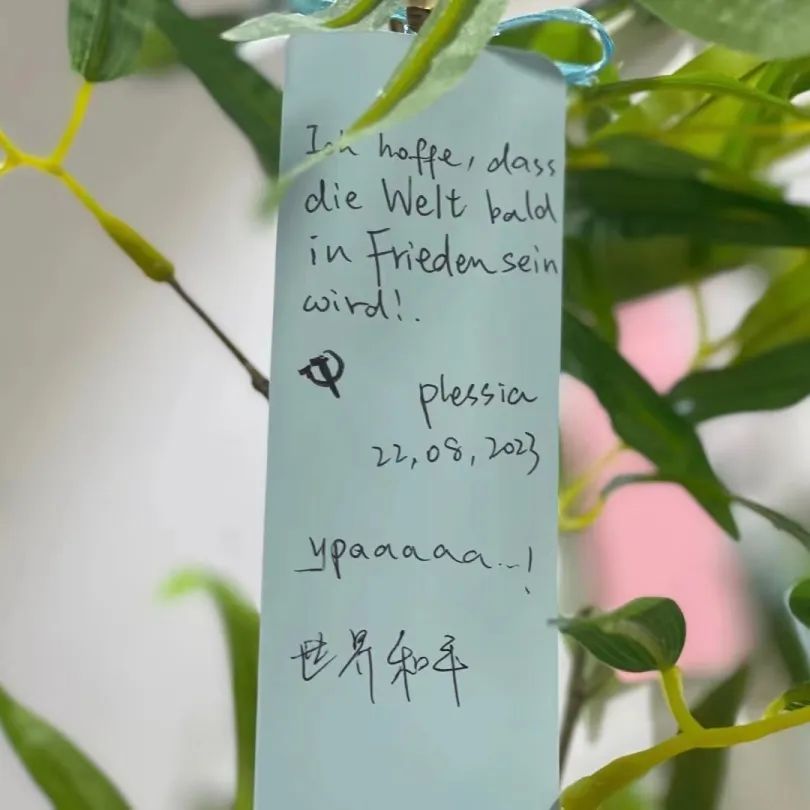 Ich hoffe, dass
die Welt bald
in Frieden sein
wird!.
plessia
22,08,2023
ураааааа...!
世界和平